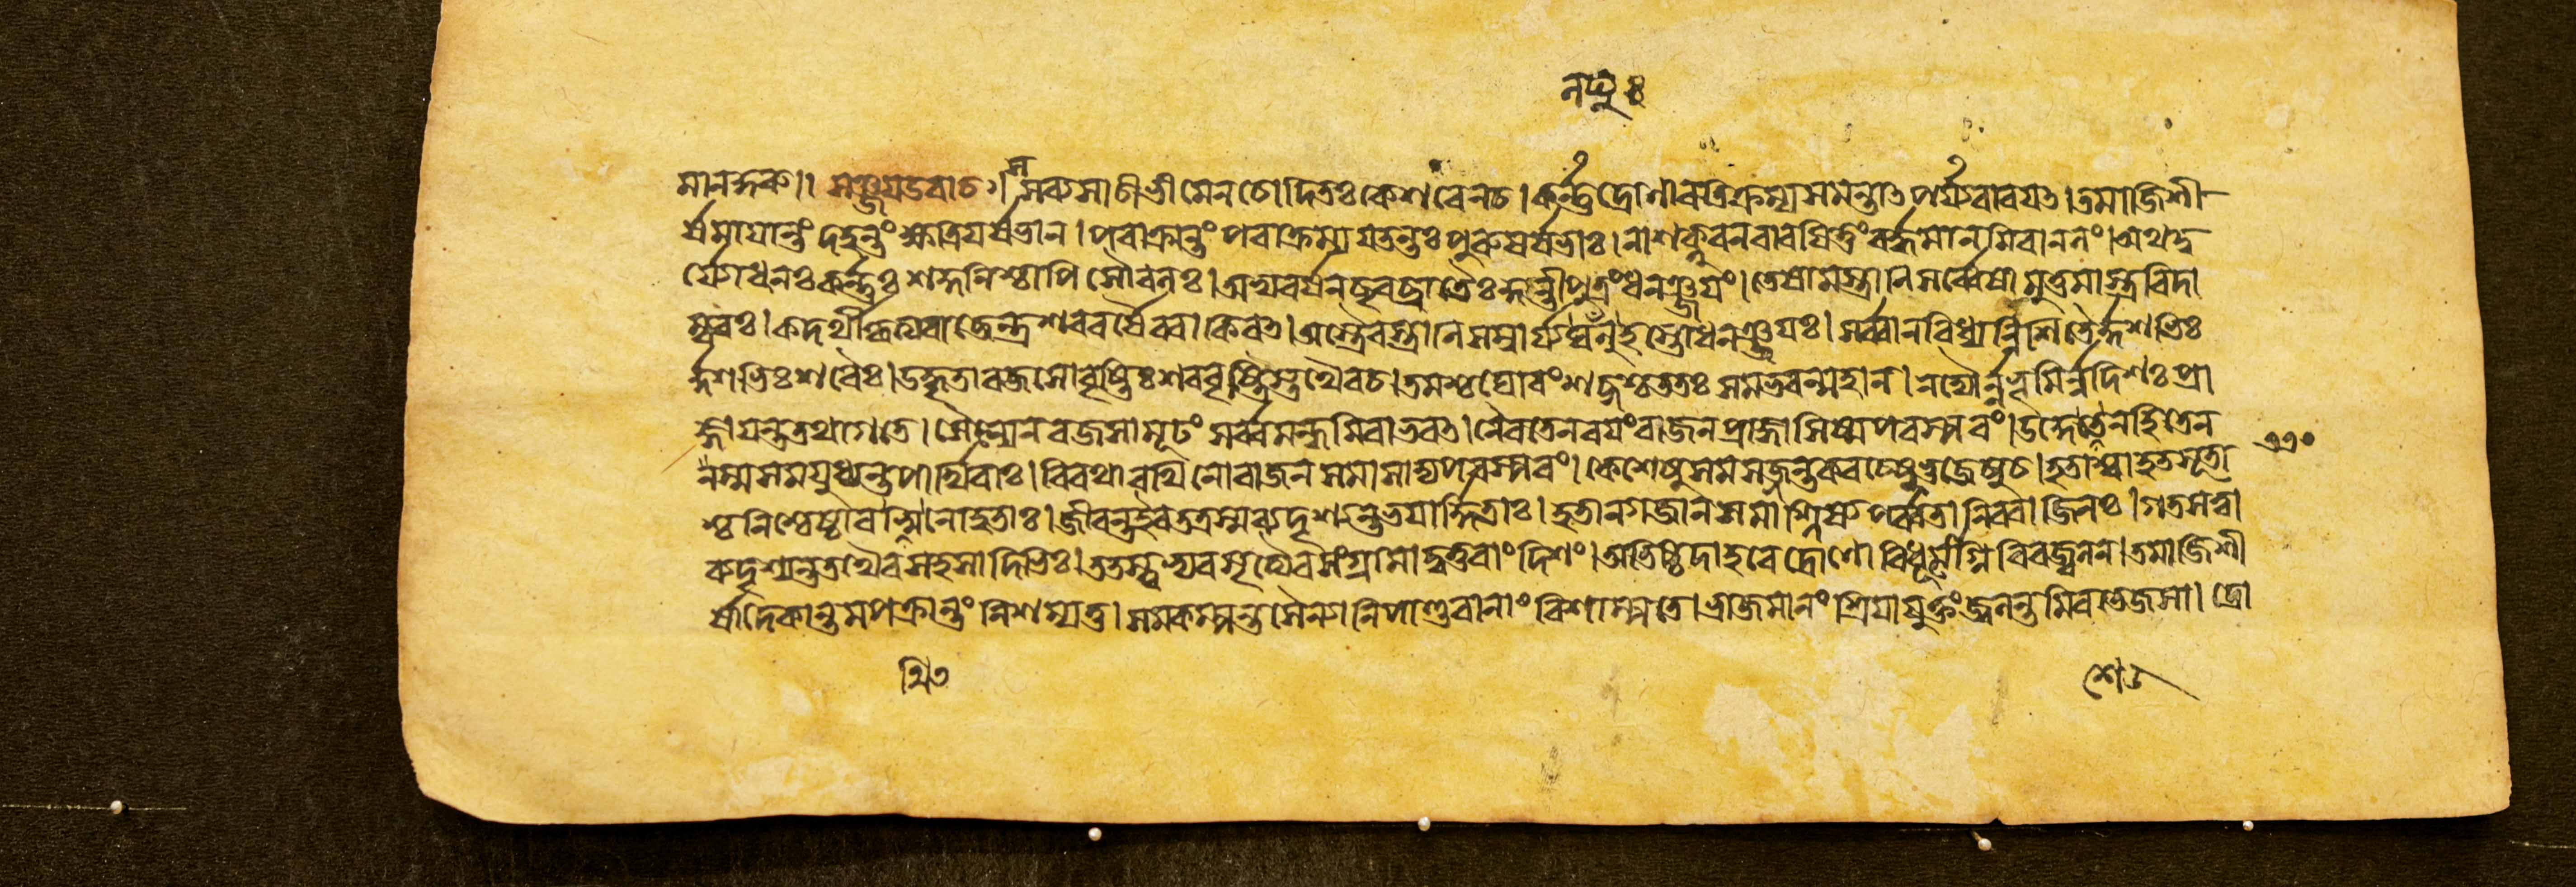 নঘুঃ
মানহ্নরু।। সঞ্জয়উবাচ। সব্যসাচী ভীমেন চোদিতঃ কেশবেনচ। কর্ন্নদ্রোণাবতিক্রম্যসমন্তাত্পর্য্যবারযত্। তমাজিশী
র্ষমাযান্তং দহন্তং ক্ষত্রিযর্ষভান্। পরাক্রান্তং পরাক্রম্যযতন্তঃ পুরুষর্ষভাঃ। নাশক্নুবনবারযিতুংবর্দ্ধমানমিবাননং। অথদু
র্য্যোধনঃ কর্ন্নঃ শকুনিশ্চাপি সৌবলঃ। অভ্যবর্ষনছরব্রাতৈঃ কুন্তীপুত্রংধনঞ্জযং। তেষামস্ত্রাণিসর্ব্বেষামুত্তমাস্ত্রবিদা
ম্বরঃ। কদর্থীকৃত্যরাজেন্দ্রশরবর্ষৈরবাকিরত্। অস্ত্রৈরস্ত্রাণিসম্বার্য্যলঘুহস্তোধনঞ্জযঃ। সর্ব্বানবিধ্যন্নিশিতৈর্দ্দশভিঃ
র্দ্দশভিঃশরৈঃ। উদ্ধূতারজসোবৃষ্টিঃ শরবৃষ্টিস্তথৈবচ। তমশ্চঘোরংশব্দশ্চততঃ সমভবন্মহান্। নদ্যৌর্ন্নভূমির্ন্নদিশঃ প্রা
জ্ঞাযন্ততথাগতে। সৈন্যেনরজসামূঢং সর্ব্বমন্ধমিবাভবত্। নৈবতেনবযংরাজনপ্রাজ্ঞাসিষ্মপরস্পরং। উদ্দেশেনহিতেন
নস্মসমযুধ্যন্তপার্থিবাঃ। বিরথারথিনোরাজনসমাসাদ্যপরস্পরং। কেশেষুসমসজ্জন্তকবচেষুভুজেষুচ। হতাশ্বাহতসূতা
শ্চনিশ্চেষ্টারথিনোহতাঃ। জীবন্তইবতত্রস্মব্যদৃশ্যন্তভযার্দ্দিতাঃ। হতানগজানসমাশ্লিষ্য পর্ব্বতানিববাজিনঃ। গতসত্বা
ব্যদৃশ্যন্ততথৈবসহসাদিভিঃ। ততস্ত্বভ্যবসৃত্যৈবসংগ্রামাদুত্তরাংদিশং। অতিষ্ঠদাহবেদ্রোণো বিধূমোঽগ্নিরিবজ্বলন্। তমাজিশী
র্ষাদেকান্তমপক্রান্তং নিশম্যতু। সমকম্পন্তসৈন্যানিপাণ্ডবানাংবিশাম্পতে। ভ্রাজমানং শ্রিযাযুক্তংজ্বলন্তমিবতেজসা। দ্রো